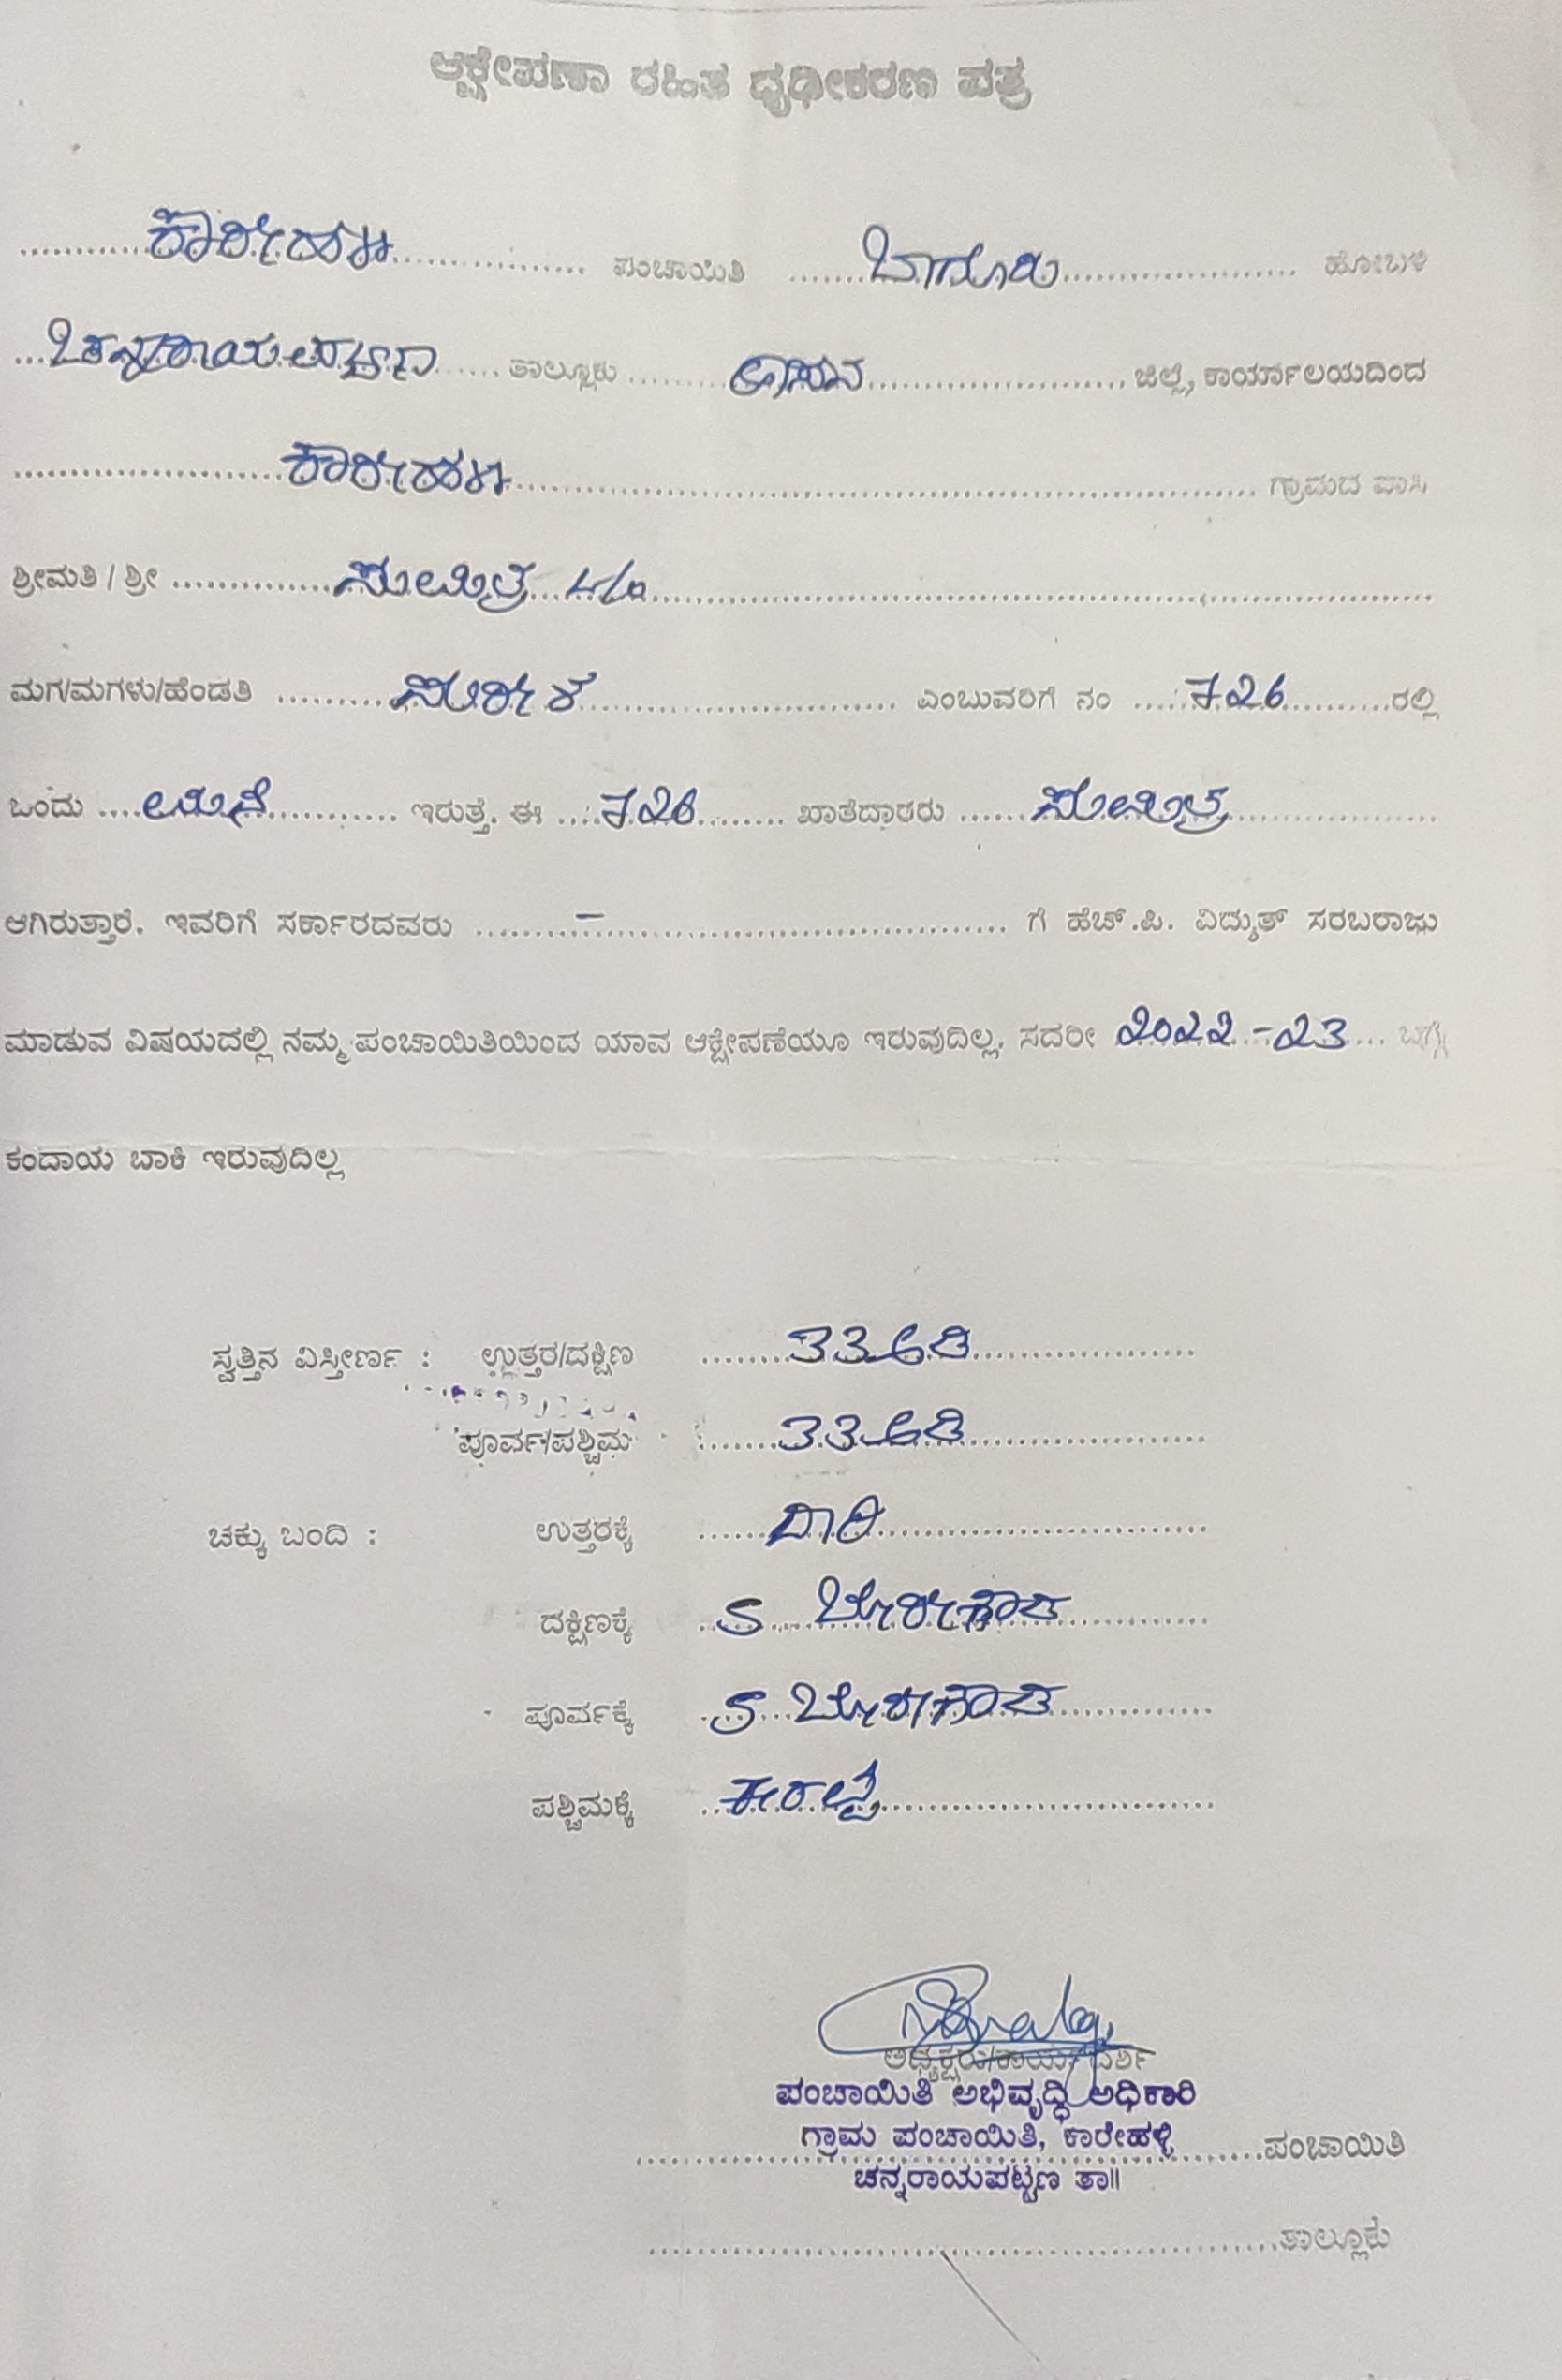 ಆಕ್ಷೇಪಣಾ ರಹಿತ ಧೃಢೀಕರಣ ಪತ್ರ
..........ಕಾರೇಹಳ್ಳಿ............... ಪಂಚಾಯಿತಿ .......ಬಾಗೂರು..................... ಹೋಬಳಿ
...ಚನ್ನರಾಯಪಟ್ಟಣ...... ತಾಲ್ಲೂಕು .........ಹಾಸನ....................... ಜಿಲ್ಲೆ, ಕಾರ್ಯಾಲಯದಿಂದ
.......................ಕಾರೇಹಳ್ಳಿ.................................................... ಗ್ರಾಮದ ವಾಸಿ
ಶ್ರೀಮತಿ / ಶ್ರೀ ..............ಸುಮಿತ್ರ... ...............................................................
ಮಗ/ಮಗಳು/ಹೆಂಡತಿ ...........ಸುರೇಶ........................... ಎಂಬುವರಿಗೆ ನಂ .....726..........ರಲ್ಲಿ
ಒಂದು ....ಮನೆ............ ಇರುತ್ತೆ. ಈ .....726........ ಖಾತೆದಾರರು ......ಸುಮಿತ್ರ...................
ಆಗಿರುತ್ತಾರೆ. ಇವರಿಗೆ ಸರ್ಕಾರದವರು ........–................................ ಗೆ ಹೆಚ್.ಪಿ. ವಿದ್ಯುತ್ ಸರಬರಾಜು
ಮಾಡುವ ವಿಷಯದಲ್ಲಿ ನಮ್ಮ ಪಂಚಾಯಿತಿಯಿಂದ ಯಾವ ಆಕ್ಷೇಪಣೆಯೂ ಇರುವುದಿಲ್ಲ. ಸದರೀ 2022-23.... ಬಗ್ಗೆ
ಕಂದಾಯ ಬಾಕಿ ಇರುವುದಿಲ್ಲ
ಸ್ವತ್ತಿನ ವಿಸ್ತೀರ್ಣ : ಉತ್ತರ/ದಕ್ಷಿಣ ........33 ಅಡಿ....................
ಪೂರ್ವ/ಪಶ್ಚಿಮ ........33 ಅಡಿ......................
ಚಕ್ಕು ಬಂದಿ : ಉತ್ತರಕ್ಕೆ .......ದಾರಿ..............................
ದಕ್ಷಿಣಕ್ಕೆ ..S.. ಬೋರೇಗೌಡ.............
ಪೂರ್ವಕ್ಕೆ ..S.. ಬೋರೇಗೌಡ.............
ಪಶ್ಚಿಮಕ್ಕೆ ..............................
ಅಧ್ಯಕ್ಷರು/ಕಾರ್ಯದರ್ಶಿ
ಪಂಚಾಯಿತಿ ಅಭಿವೃದ್ಧಿ ಅಧಿಕಾರಿ
ಗ್ರಾಮ ಪಂಚಾಯಿತಿ, ಕಾರೇಹಳ್ಳಿ
..................................................ಪಂಚಾಯಿತಿ
ಚನ್ನರಾಯಪಟ್ಟಣ ತಾ||
..................................................ತಾಲ್ಲೂಕು